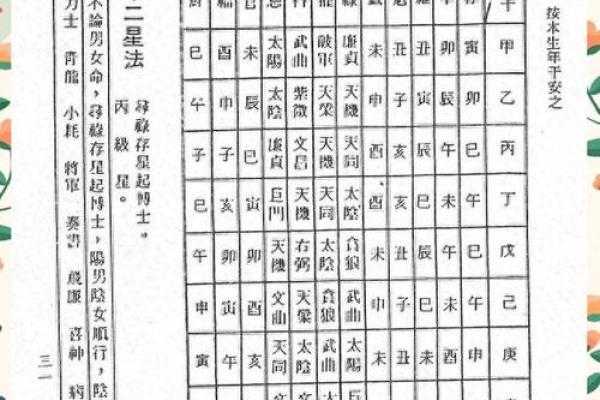 按本生年干安之
干 甲 乙 丙 丁 戊 己 庚
寅 卯 巳 午 巳 午 申
卯 辰 午 未 午 未 酉
丑 寅 辰 巳 辰 巳 未
丑 子 亥 亥 丑 子 丑
未 申 酉 酉 未 申 未
廉貞 天機 天同 太陰 貪狼 武曲 太陽
破軍 天梁 天機 天同 太陰 貪狼 武曲
武曲 紫微 文昌 天機 右弼 天梁 太陰
太陽 太陰 廉貞 巨門 天機 文曲 天同
未 辰 巳 寅 卯 酉 亥
福 酉 申 子 亥 卯 寅 午
廚 巳 午 子 巳 午 申 寅
尋祿存星起博士。
丙級星。
二星法
不論男女命，尋祿存星起博士，陽男陰女順行，陰
力士 青龍 小耗 將軍 奏書 飛廉 喜神 病
三一